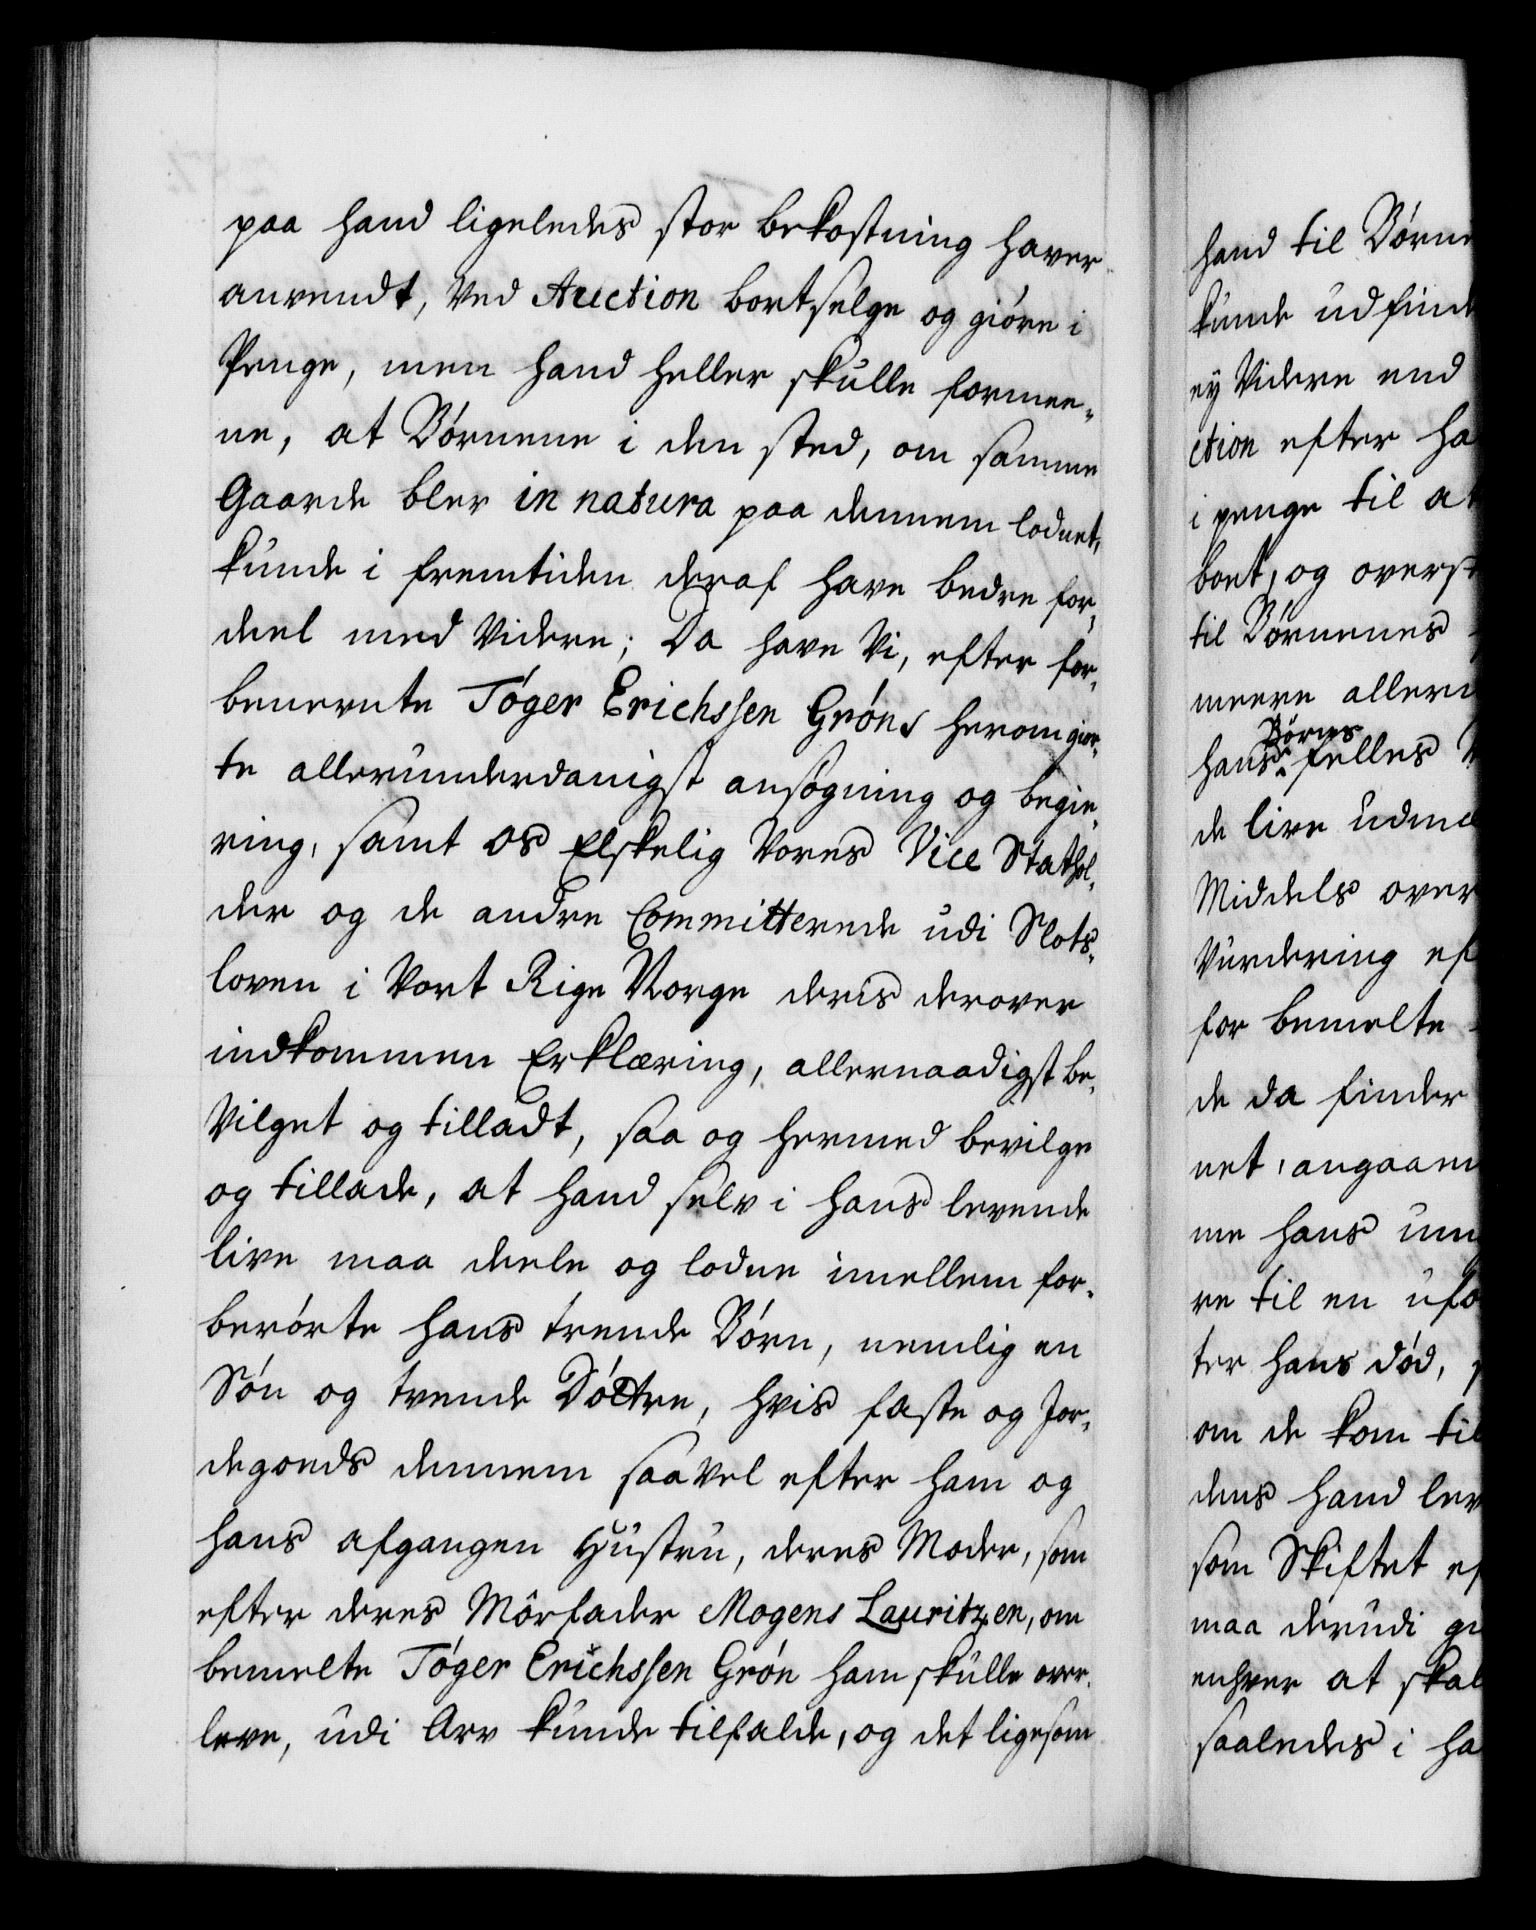 paa hand ligeledes stor bekostning haver
anvendt, Ved Auction bortselge og giøre i
Penge, men hand heller skulle formee-
ne, at Børnene i den sted, om samme
Gaarde blev in natura paa dennem lodnet,
kunde i fremtiden deraf have bedre for-
deel med Videre; Da have Vi, efter for-
benevnte Tøger Erichssen Grøns herom gior-
te allerunderdanigst ansøgning og begie-
ring, samt os Elskelig Vores Vice Stathol-
der og de andre Committerede udi Slots-
loven i Vort Rige Norge deris derover
indkommen Erklæring, allernaadigst be-
Vilget og tilladt, saa og hermed bevilge
og tillade, at hand selv i hans levende
live maa deele og lodne imellem for-
berørte hans trende Børn, nemlig en
Søn og tvende Døttre, hvis faste og Jor-
degonds dennem saavel efter ham og
hans afgangen Hustru, deres Moder, som
efter deres Morfader Mogens Lauritzen, om
bemelte Tøger Erichssen Grøn ham skulle over-
leve, udi Arv kunde tilfalde, og det ligesom
hand til Børne
kunde udfind
ey Videre end
ction efter ha
i penge til at
bort, og overst
til Børnenes
meere allern
Børns
hans felles
de live udme
Middels over
Vurdering ef
for bemelte
de da finder
net, angaaen
me hans um
re til en ufo
ter hans død,
om de kom til
dens hand lev
som Skiftet ef
maa derudi gi
enhver at skal
saaledes i ha